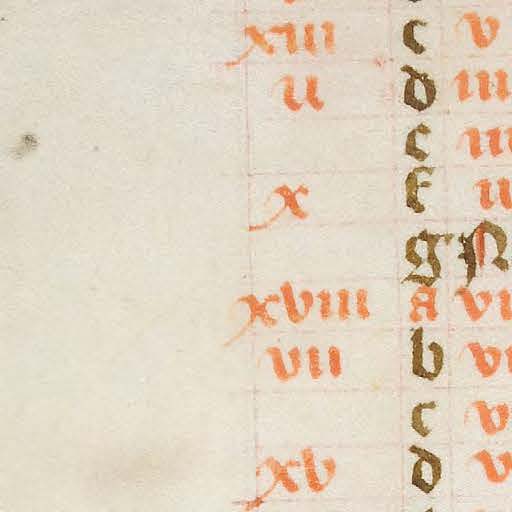 xiii c v
ii d iii
e iii
x f ii
g N
xviii A vi
vii b vi
c v
xv d v